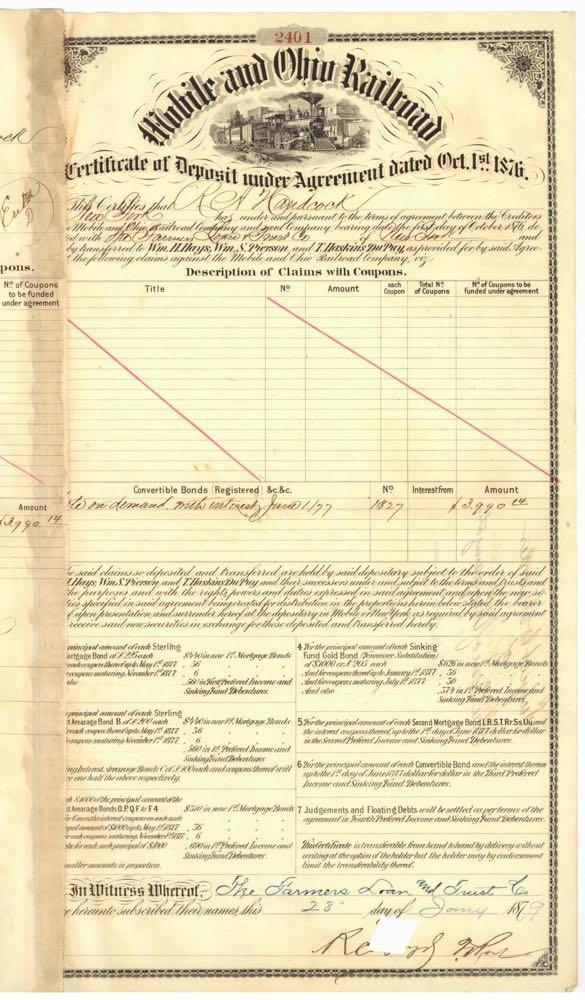 2401
Mobile and Ohio Railroad
Certificate of Deposit under Agreement dated Oct. 1st 1876.
This Certifies that R A Handcock
New York has under and pursuant to the terms of agreement between the Creditors
Mobile and Ohio Railroad Company and said Company bearing date the first day of October 1876, de
ed with The Farmers Loan & Trust Co of New York and
by transferred to Wm. H. Hays, Wm. S. Pierson, and T. Haskins Du Puy, as provided for by said Agree
the following claims against the Mobile and Ohio Railroad Company, viz.
Description of Claims with Coupons.
pons.
Nº of Coupons to be funded under agreement
Title Nº Amount each Coupon Total Nº of Coupons Nº of Coupons to be funded under agreement
Convertible Bonds (Registered) &c.&c. Nº Interest from Amount
on demand with interest June 1/77 1827 $3,990 14
Amount
$3,990 14
said claims so deposited and transferred are held by said depositary subject to the order of said
Hays, Wm. S. Pierson, and T. Haskins Du Puy and their successors under and subject to the terms and trusts and
the purposes and with the rights, powers and duties expressed in said agreement and upon the new se
ties specified in said agreement being created for distribution in the proportions herein below stated, the bearer
upon presentation and surrender hereof at the depositary in Mobile or New York, as required by said agreement
receive said new securities in exchange for those deposited and transferred hereby:
principal amount of each Sterling
rtgage Bond of £225 each $440 in new 1st Mortgage Bonds
each coupon thereof up to May 1st 1877 . 36
coupons maturing November 1st 1877 . 6
also 560 in First Preferred Income and
Sinking Fund Debentures.
principal amount of each Sterling
st Arrearage Bond B. of £200 each $440 in new 1st Mortgage Bonds
each coupon thereof up to May 1st 1877 . 36
coupons maturing November 1st 1877 . 6
560 in 1st Preferred Income and
Sinking Fund Debentures.
ing Interest Arrearage Bonds C of £100 each and coupons thereof will
ve one half the above respectively.
ch $1000 of the principal amount of the
st Arrearage Bonds O.P.Q.F. & F 4 $310 in new 1st Mortgage Bonds
6 months interest coupon on each such
pal amount of $1000 up to May 1st 1877 . 36
each coupon maturing November 1st 1877 . 6
for each such principal of $1000 . 690 in 1st Preferred Income and
Sinking Fund Debentures.
smaller amounts in proportion.
4 For the principal amount of each Sinking
Fund Gold Bond (Tennessee Substitution)
of $1000 or £205 each $626 in new 1st Mortgage Bonds
And for coupons thereof up to January 1st 1877 . 36
And for coupons maturing July 1st 1877 . 30
And also . 374 in 1st Preferred Income and
Sinking Fund Debentures.
5 For the principal amount of each Second Mortgage Bond L.R.S.T. Rr Ss Uu and
the interest coupons thereof, up to the 1st day of June 1877 dollar for dollar
in the Second Preferred Income and Sinking Fund Debentures.
6 For the principal amount of each Convertible Bond and the interest thereon
up to the 1st day of June 1877 dollar for dollar in the Third Preferred
Income and Sinking Fund Debentures.
7 Judgements and Floating Debts will be settled as per terms of the
agreement in Fourth Preferred Income and Sinking Fund Debentures.
This Certificate is transferable from hand to hand by delivery without
writing at the option of the holder but the holder may by endorsement
limit the transferability thereof.
In Witness Whereof, The Farmers Loan and Trust Co
hereunto subscribed their names, this 28 day of Jany 1879